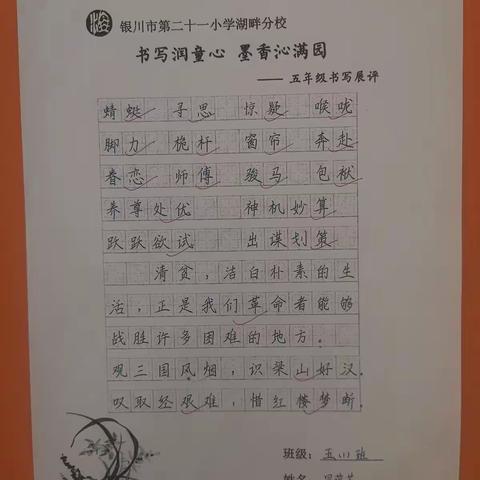 银川市第二十一小学湖畔分校
书写润童心 墨香沁满园
——五年级书写展评
蜻蜓 寻思 惊疑 喉咙
脚力 桅杆 窗帘 奔赴
眷恋 师傅 骏马 包袱
养尊处优 神机妙算
跃跃欲试 出谋划策
清贫，洁白朴素的生
活，正是我们革命者能够
战胜许多困难的地方。
观三国风烟，识梁山好汉。
叹取经艰难，惜红楼梦断。
班级：五(1)班
姓名：